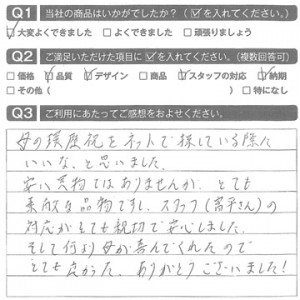 Q1 当社の商品はいかがでしたか?(☑を入れてください。)
☑大変よくできました □よくできました □頑張りましょう
Q2 ご満足いただけた項目に☑を入れてください。(複数回答可)
□価格 ☑品質 ☑デザイン □商品 ☑スタッフの対応 ☑納期
□その他( ) □特になし
Q3 ご利用にあたってご感想をおよせください。
母の還暦祝をネットで探している際に
いいな、と思いました。
安い買物ではありませんが、とても
素敵な品物ですし、スタッフ(さん)の
対応がとても親切で安心しました。
そして何より母が喜んでくれたので
とても良かった。ありがとうございました!